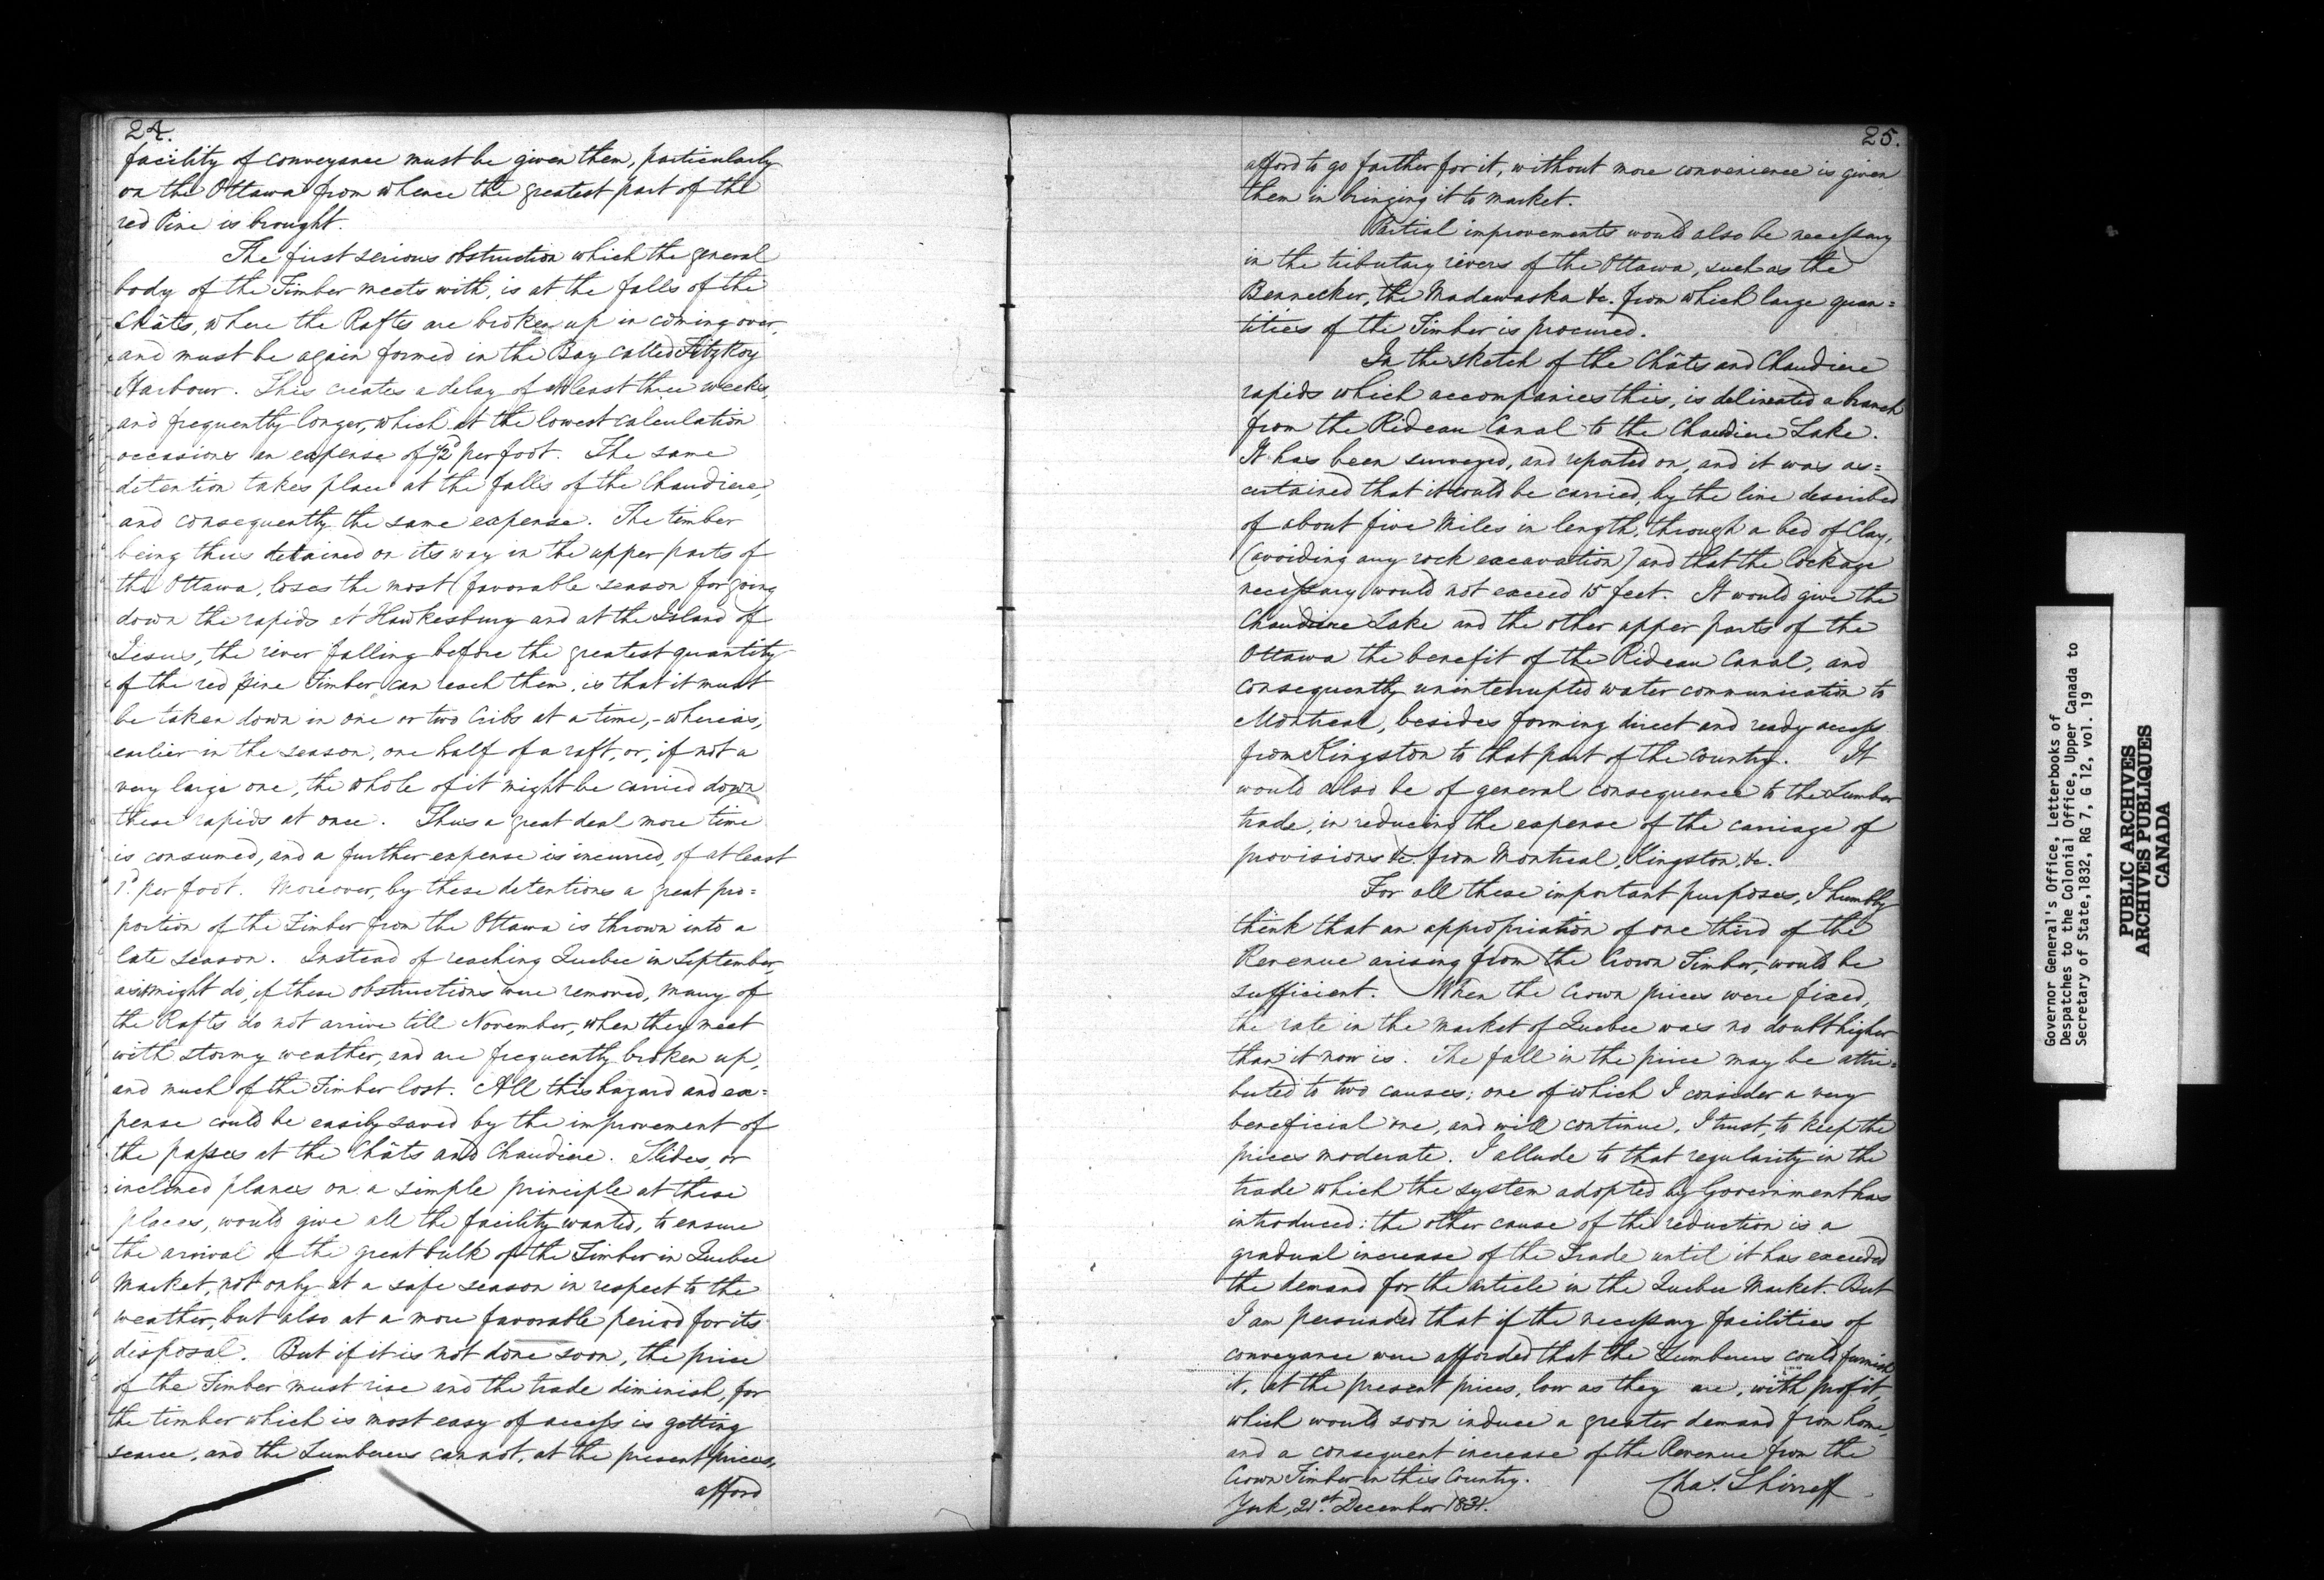 24.
facility of conveyance must be given them, particularly
on the Ottawa from whence the greatest part of the
red Pine is brought.
The first serious obstruction which the general
body of the Timber meets with, is at the falls of the
Châts, where the Rafts are broken up in coming over,
and must be again formed in the Bay called FitzRoy
Harbour. This creates a delay of at least three weeks,
and frequently longer, which at the lowest calculation
occasions an expense of ½d per foot. The same
detention takes place at the falls of the Chaudiere,
and consequently the same expense. The timber
being thus detained on its way in the upper parts of
the Ottawa, loses the most favorable season for going
down the rapids at Hawkesbury and at the Island of
Jesus, the river falling before the greatest quantity
of the red pine Timber can reach them, is that it must
be taken down in one or two Cribs at a time, - whereas,
earlier in the season, one half of a raft, or, if not a
very large one, the whole of it might be carried down
these rapids at once. Thus a great deal more time
is consumed, and a further expense is incurred, of at least
1d per foot. Moreover, by these detentions a great pro=
portion of the Timber from the Ottawa is thrown into a
late season. Instead of reaching Quebec in September,
as it might do, if these obstructions were removed, many of
the Rafts do not arrive till November, when they meet
with stormy weather, and are frequently broken up,
and much of the Timber lost. All this hazard and ex=
pense could be easily saved by the improvement of
the passes at the Châts and Chaudiere. Slides, or
inclined planes on a simple principle at these
places, would give all the facility wanted, to ensure
the arrival of the great bulk of the Timber in Quebec
Market, not only at a safe season in respect to the
weather, but also at a more favorable period for its
disposal. But if it is not done soon, the price
of the Timber must rise and the trade diminish, for
the timber which is most easy of access is getting
scarce, and the Lumberers cannot, at the present prices,
afford
25.
afford to go farther for it, without more convenience is given
them in bringing it to market.
Partial improvements would also be necessary
in the tributary rivers of the Ottawa, such as the
Bennecker, the Madawaska &c. from which large quan=
tities of the Timber is procured.
In the sketch of the Châts and Chaudiere
rapids which accompanies this, is delineated a branch
from the Rideau Canal to the Chaudiere Lake.
It has been surveyed, and reported on, and it was as=
certained that it could be carried, by the line described
of about five Miles in length, through a bed of Clay,
(avoiding any rock excavation) and that the lockage
necessary would not exceed 15 feet. It would give the
Chaudiere Lake and the other upper parts of the
Ottawa the benefit of the Rideau Canal, and
consequently uninterrupted water communication to
Montreal, besides forming direct and ready access
from Kingston to that part of the Country. It
would also be of general consequence to the Lumber
trade, in reducing the expense of the carriage of
provisions &c. from Montreal, Kingston, &c.
For all these important purposes, I humbly
think that an appropriation of one third of the
Revenue arising from the Crown Timber, would be
sufficient. When the Crown prices were fixed,
the rate in the market of Quebec was no doubt higher
than it now is. The fall in the price may be attri=
buted to two causes; one of which I consider a very
beneficial one, and will continue, I trust, to keep the
prices moderate. I allude to that regularity in the
trade which the system adopted by Government has
introduced: the other cause of the reduction is a
gradual increase of the Trade until it has exceeded
the demand for the article in the Quebec Market. But
I am persuaded that if the necessary facilities of
conveyance were afforded that the Lumberers could furnish
it, at the present prices, low as they are, with profit,
which would soon induce a greater demand from home,
and a consequent increase of the Revenue from the
Crown Timber in this Country.
Chas. Shirreff
York, 21st December 1831.
Governor General's Office, Letterbooks of
Despatches to the Colonial Office, Upper Canada to
Secretary of State, 1832, RG 7, G 12, vol. 19
PUBLIC ARCHIVES
ARCHIVES PUBLIQUES
CANADA